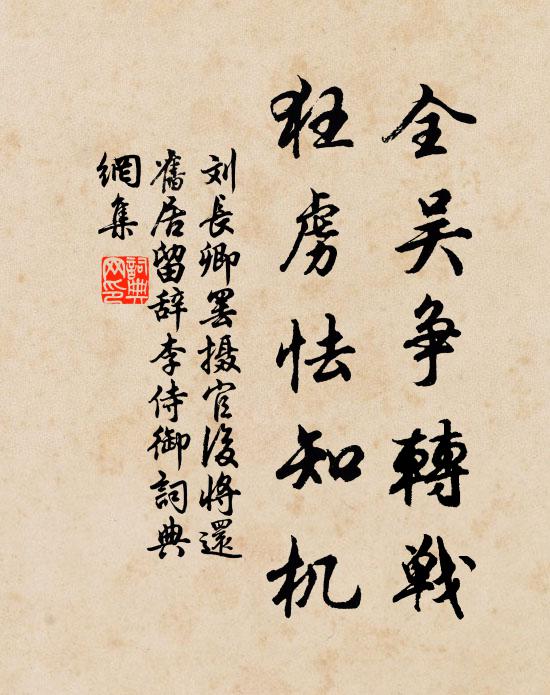 全吴争轉戦
狂虏怯知机
刘長卿罢摄官後将還
舊居留辞李侍御詞典
網集
詞典網印